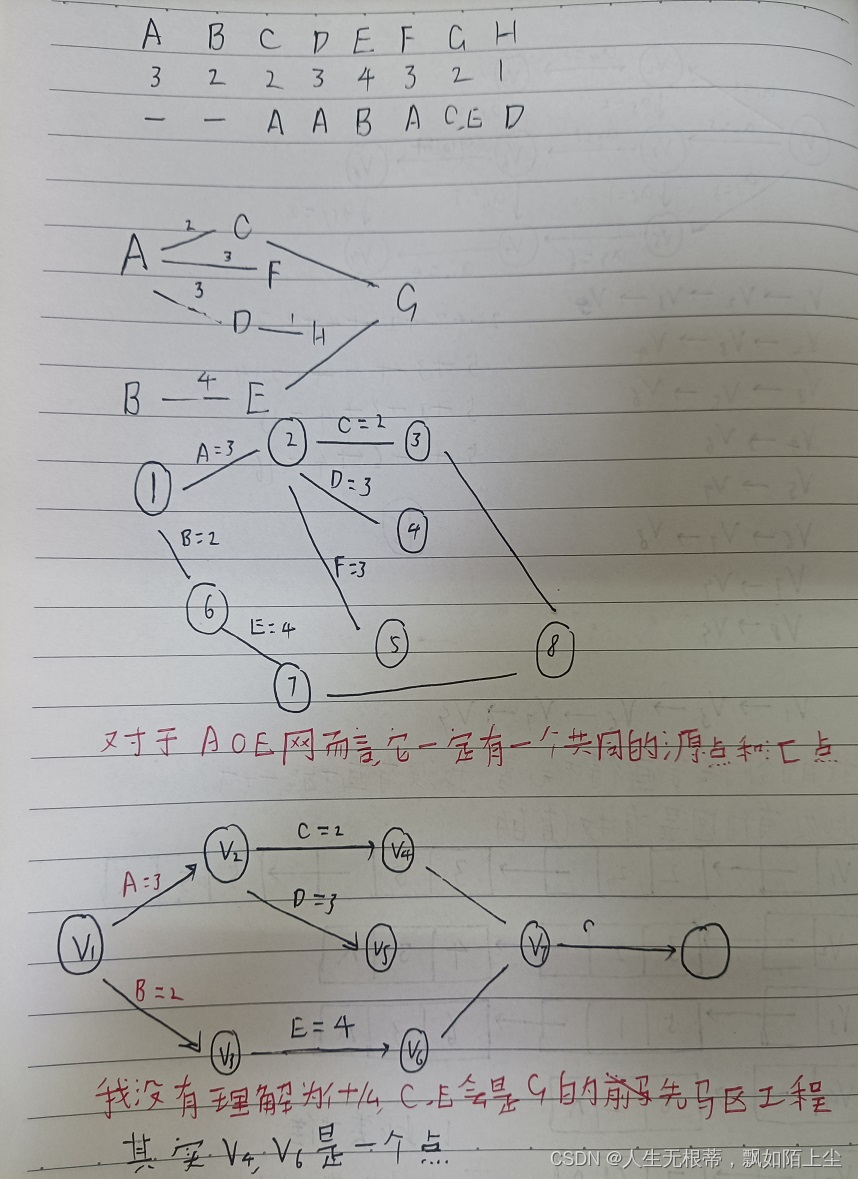 A B C D E F G H
3 2 2 3 4 3 2 1
— — A A B A C,E D
2 C
A 3 F
3 G
D 1 H
B 4 E
C=2
A=3 2 3
1 D=3
4
B=2
F=3
6
E=4 5 8
7
对于AOE网而言,它一定有一个共同的源点和汇点
C=2
V2 V4
A=3 D=3
V1 V5 V7
B=2
E=4
V3 V6
我没有理解为什么,C,E会是G的前驱工程
其实V4,V6是一个点
CSDN @人生无根蒂,飘如陌上尘